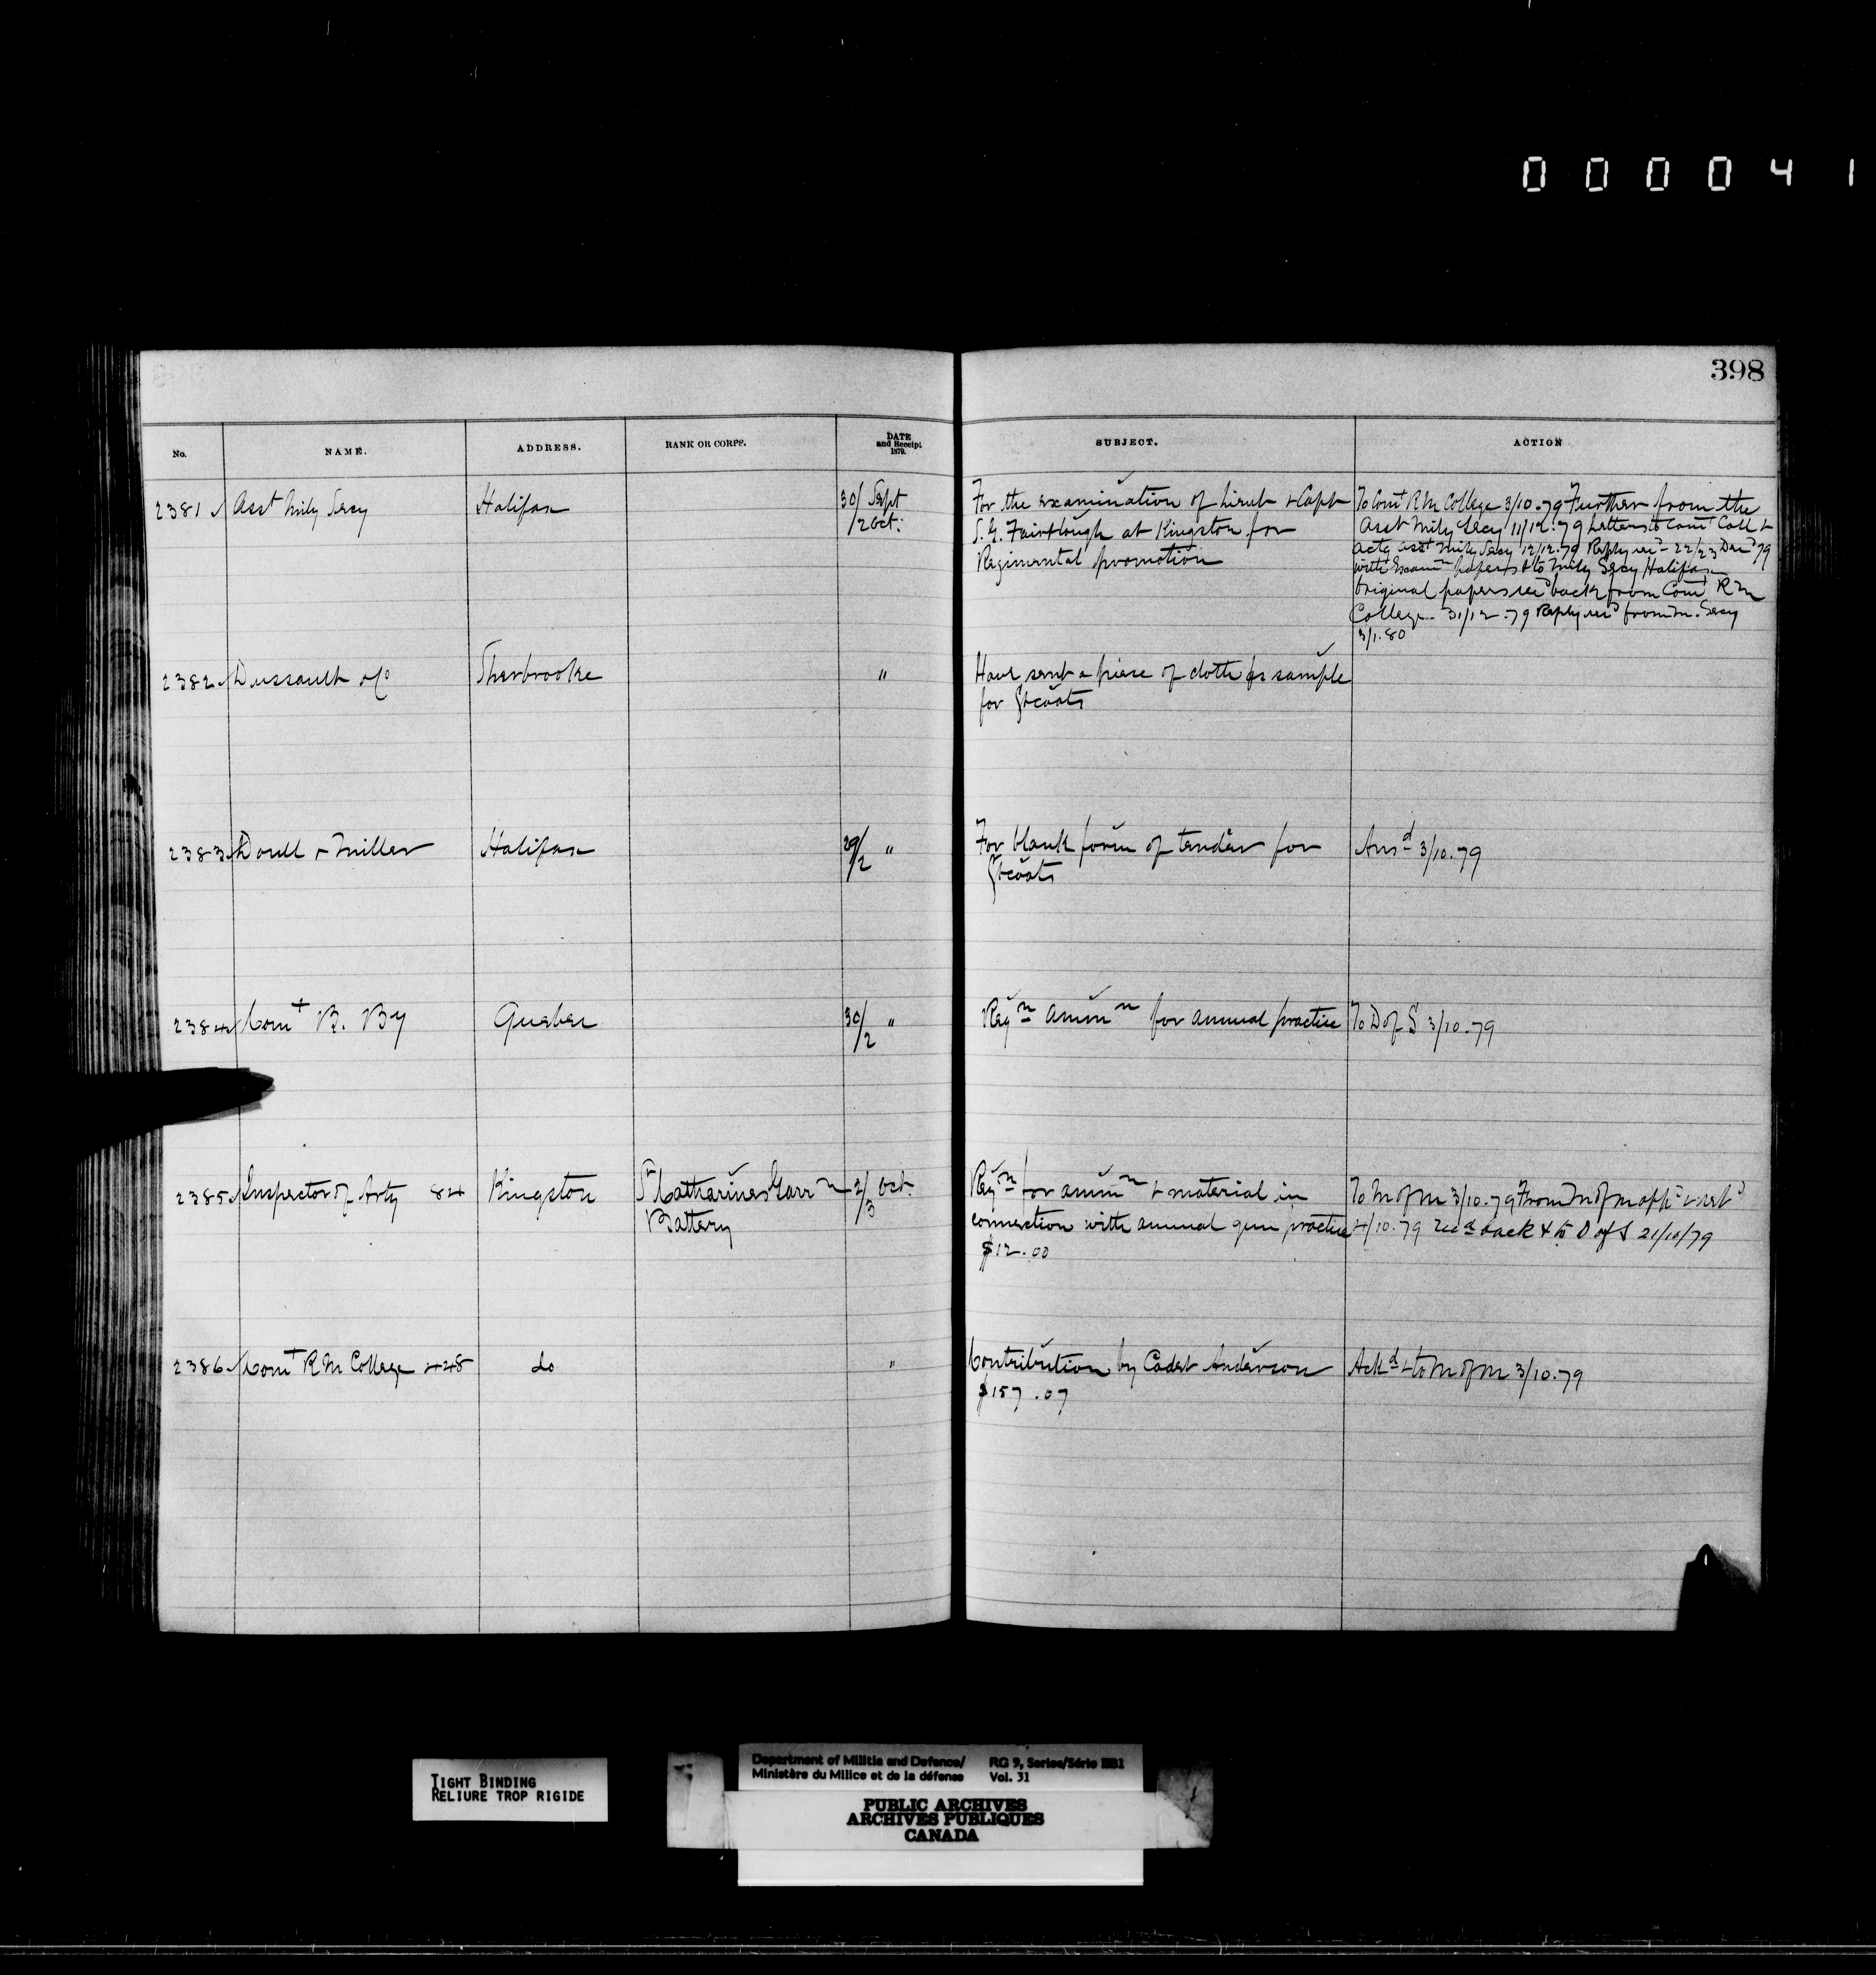 000041
398
No. NAME. ADDRESS. RANK OR CORPS. DATE and Receipt 1879. SUBJECT. ACTION
2381 Asst Mily Secy Halifax 30/ Sept /2 Oct: For the examination of Lieut & Capt To Comt R M College 3/10.79 Further from the
S. G. Fairtlough at Kingston for Asst Mily Secy 11/12.79 Letters to Comt Coll &
Regimental promotion actg asst Mily Secy 12/12.79 Reply recd 22/23 Decr 79
with Examn papers & to Mily Secy Halifax
Original papers recd back from Comt R M
College 31/12.79 Reply recd from M. Secy
3/1.80
2382 Dussault & Co Sherbrooke " Have sent a piece of cloth as sample
for Gtcoats
2383 Doull & Miller Halifax 29/2 " For blank form of tender for Ansd 3/10.79
Gtcoats
2384 Comt B. By Quebec 30/2 " Reqn ammn for annual practice To D of S 3/10.79
2385 Inspector of Arty 84 Kingston St Catharines Garrn 2/3 Oct. Reqn for ammn & material in To M of M 3/10.79 From M of M
Battery connection with annual gun practice 4/10.79 Recd back & to D of S 21/10/79
$12.00
2386 Comt R M College 448 do " Contribution by Cadet Anderson Ackd & to M of M 3/10.79
$157.07
TIGHT BINDING
RELIURE TROP RIGIDE
Department of Militia and Defence/ RG 9, Series/Série IIB1
Ministère du Milice et de la défense Vol. 31
PUBLIC ARCHIVES
ARCHIVES PUBLIQUES
CANADA